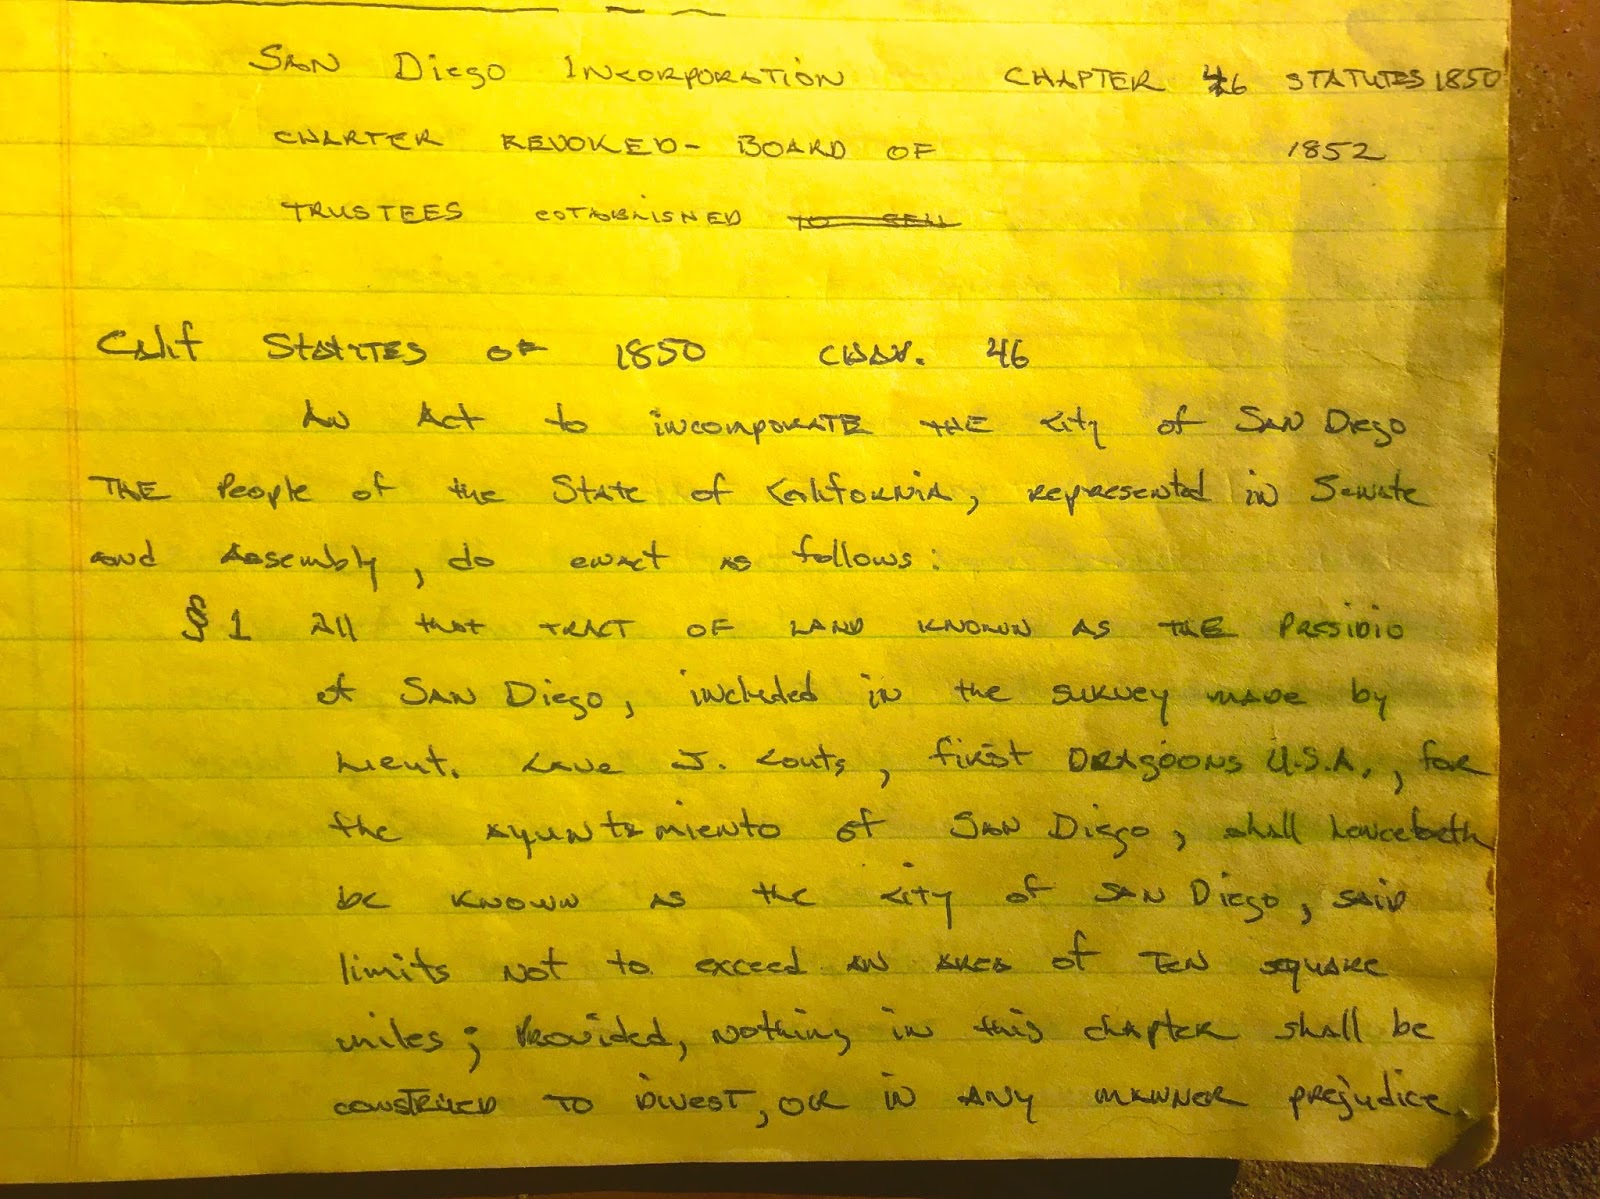 San Diego Incorporation CHAPTER 46 STATUTES 1850
CHARTER REVOKED- BOARD OF 1852
TRUSTEES ESTABLISHED TO SELL
Calif STATUTES OF 1850 CHAP. 46
An Act to incorporate THE City of San Diego
THE People of the State of California, represented in Senate
and Assembly, do enact as follows:
§ 1 All that TRACT OF LAND KNOWN AS THE Presidio
of San Diego, included in the survey made by
Lieut. Cave J. Couts, first DRAGOONS U.S.A., for
the ayuntamiento of San Diego, shall henceforth
be known as the City of San Diego, said
limits not to exceed an area of TEN square
miles; Provided, nothing in this chapter shall be
CONSTRUED TO DIVEST, OR IN ANY MANNER prejudice